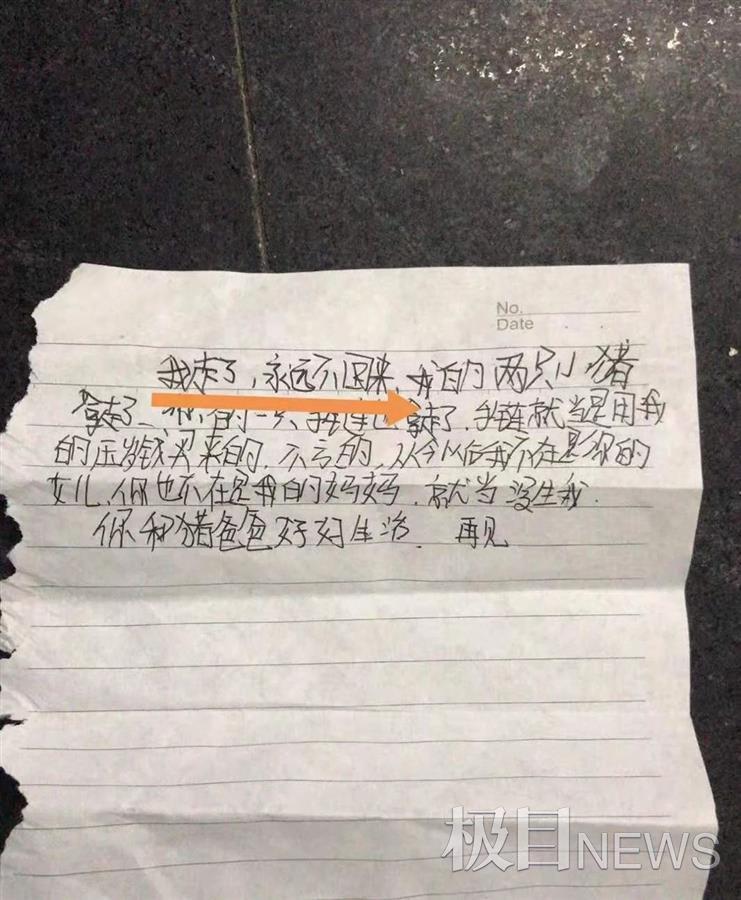 No.
Date
我走了,永远不回来、我的两只小猪
拿走了、你的一只手链也拿走了,手链就当是用我
的压岁钱买来的,不亏的,从今以后我不在是你的
女儿、你也不在是我的妈妈,就当没生我.
你和猪爸爸好好生活. 再见
极目NEWS